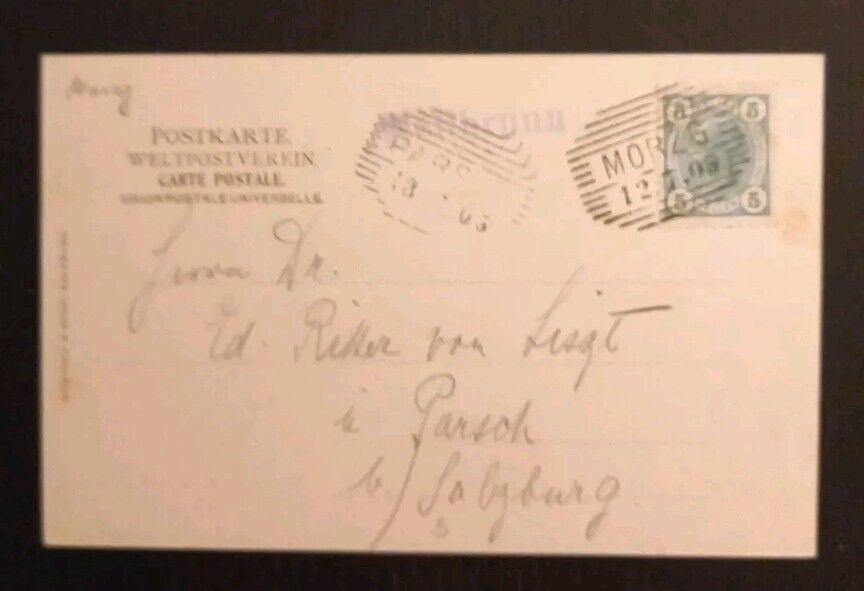 POSTKARTE.
WELTPOSTVEREIN
CARTE POSTALE.
UNION POSTALE UNIVERSELLE.
MORZG
12.
5 5
5 5
Herrn Dr.
Ed. Ritter von Liszt
in Parsch
b/ Salzburg